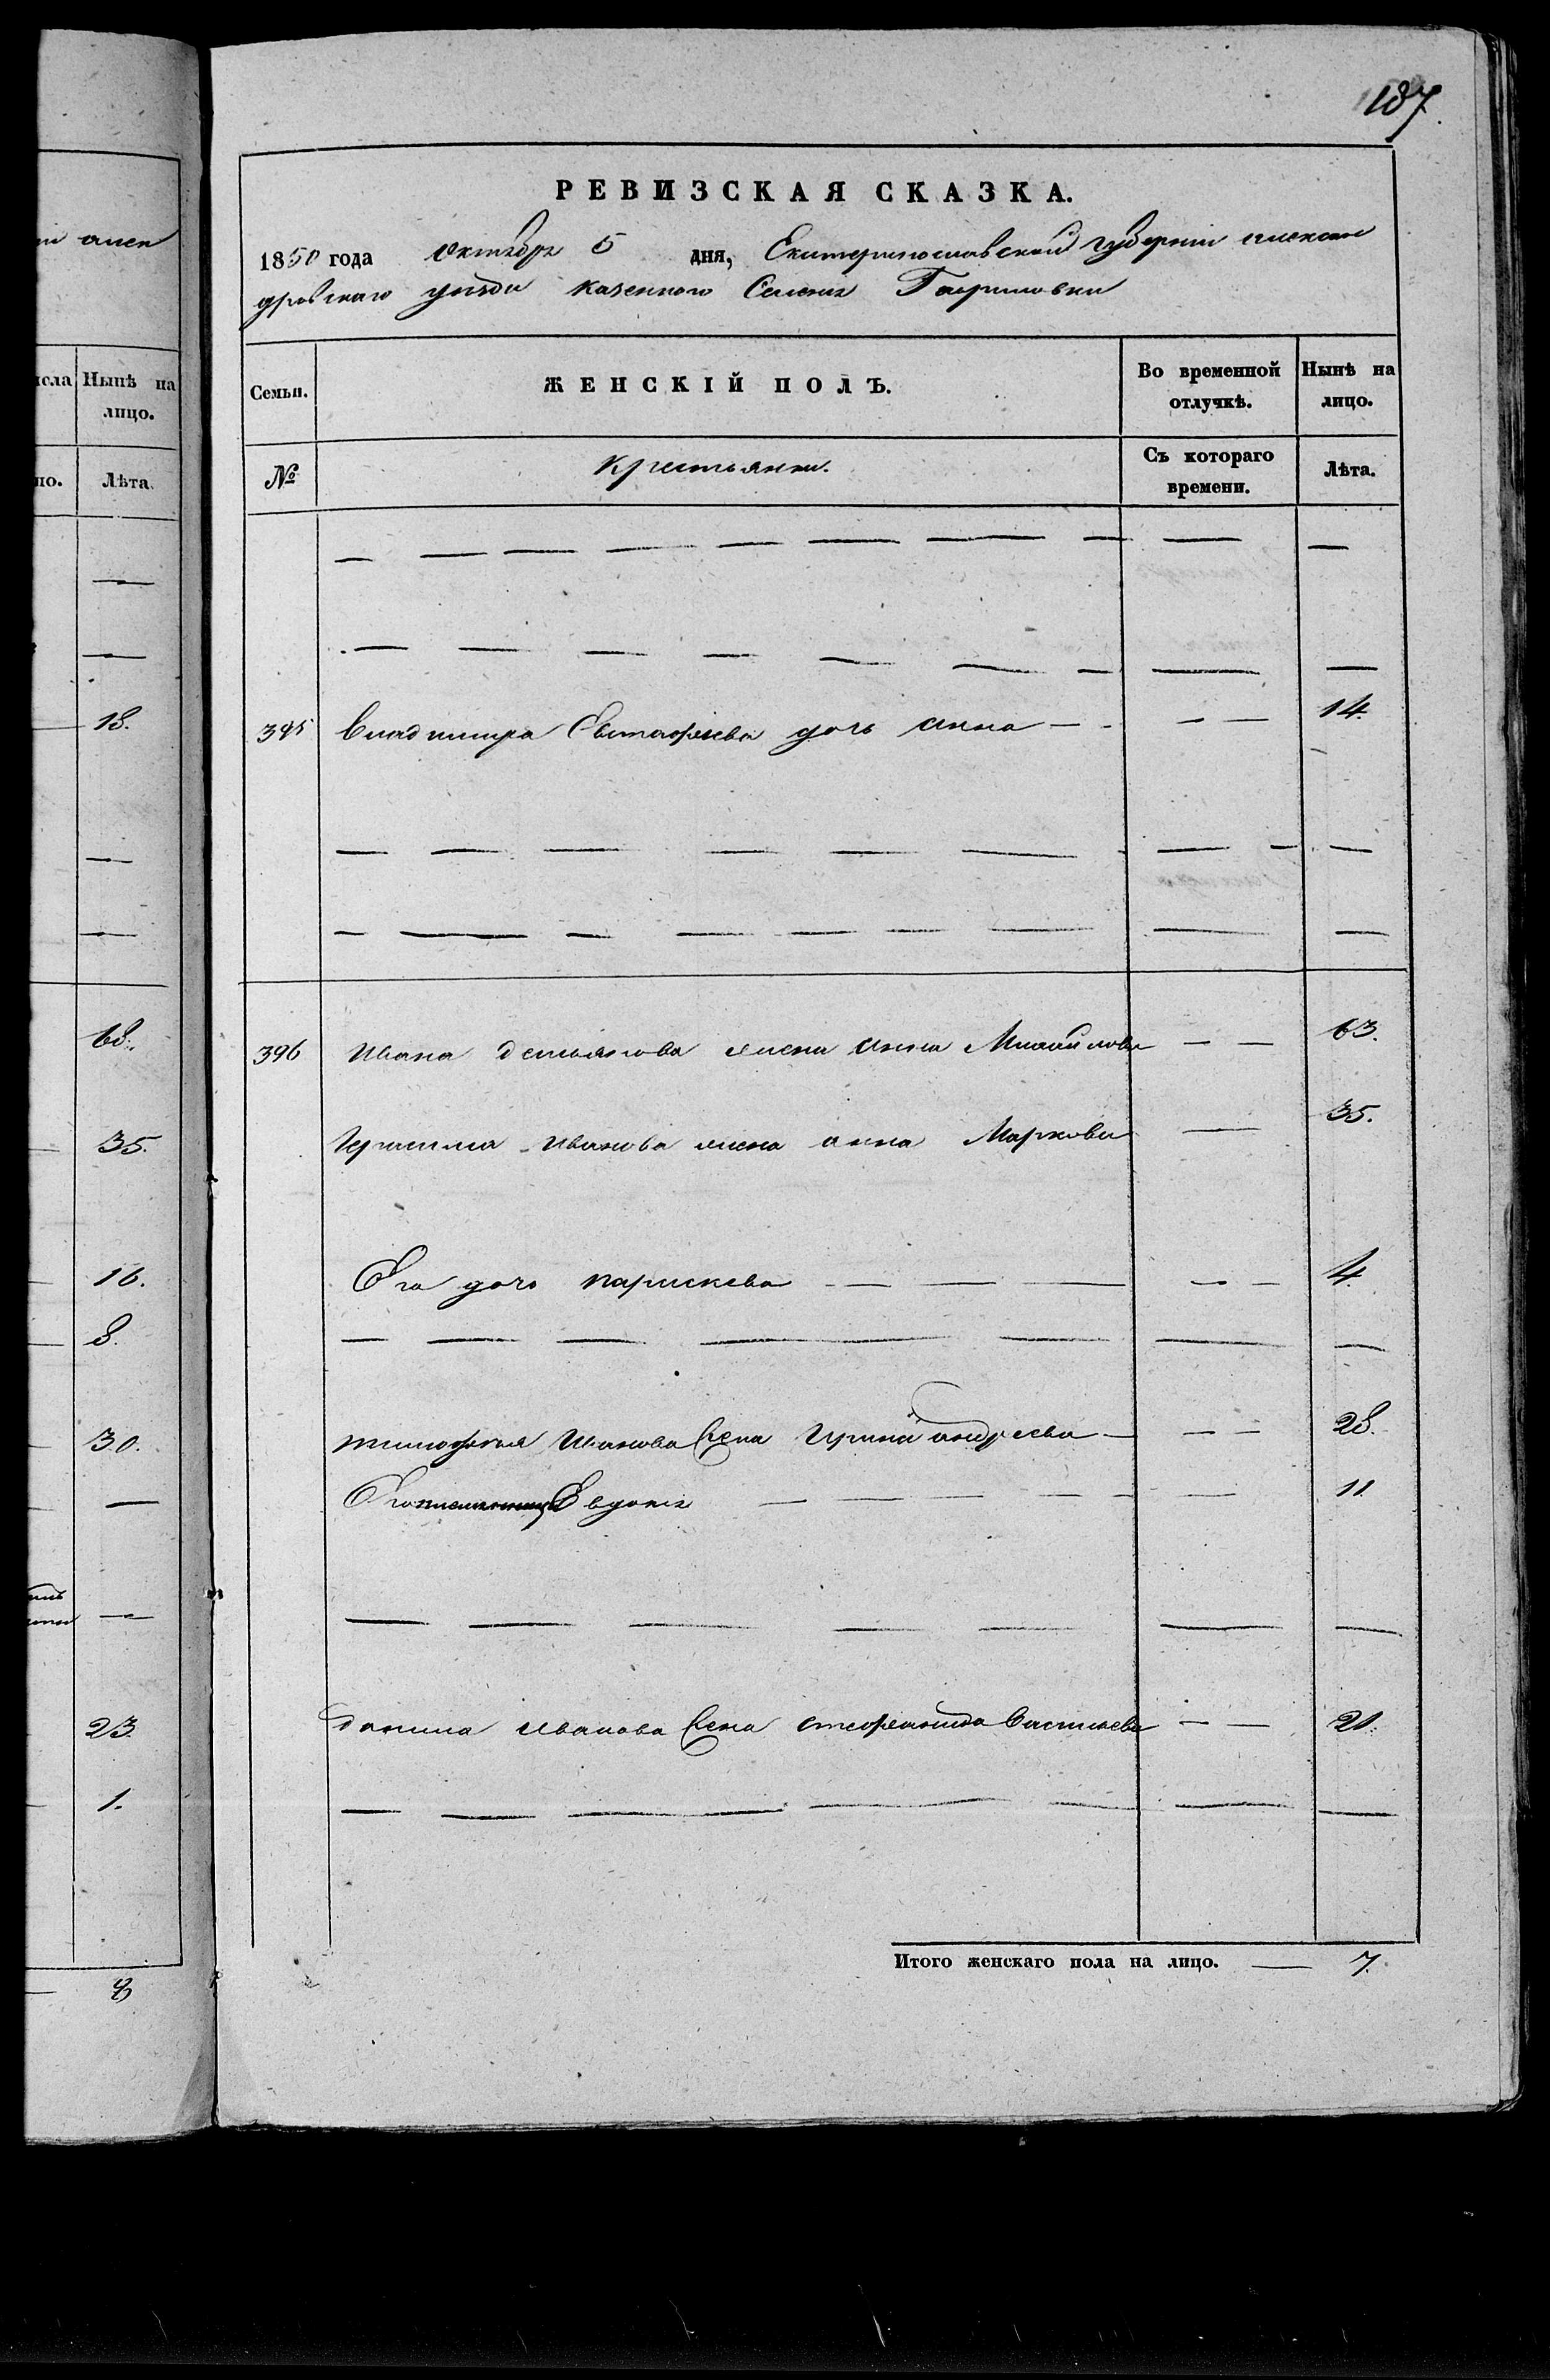 187.
РЕВИЗСКАЯ СКАЗКА.
1850 года октября 5 дня, Екатеринославской губернии алексан
дровскаго уезда казенного Селения Гавриловки
Семьи.
ЖЕНСКІЙ ПОЛЪ.
Во временной отлучкѣ.
Нынѣ на лицо.
№
крестьянки.
Съ котораго времени.
Лѣта.
395 Владимира Евстафиева дочь анна 14.
396 Ивана демьянова жена анна Михайлова 63.
Герасима Иванова жена анна Маркова 35.
Его дочь параскева 4
тимофея Иванова жена Ирина андреева 28.
Его Евдокия 11
данила Иванова жена степанида Васильева 20.
Итого женскаго пола на лицо. 7.
Нынѣ на
лицо.
но. Лѣта.
18.
68.
35.
16.
8.
30.
23.
1.